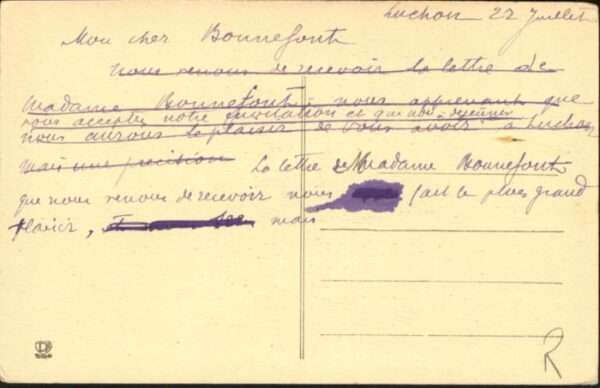 Luchon 22 Juillet
Mon cher Bonnefont
nous venons de recevoir la lettre de
Madame Bonnefont, nous apprenant que
vous acceptez notre invitation et que
nous aurons le plaisir de vous avoir à déjeuner à Luchon
mais une precision La lettre de Madame Bonnefont
que nous venons de recevoir nous fait le plus grand
plaisir, mais
R